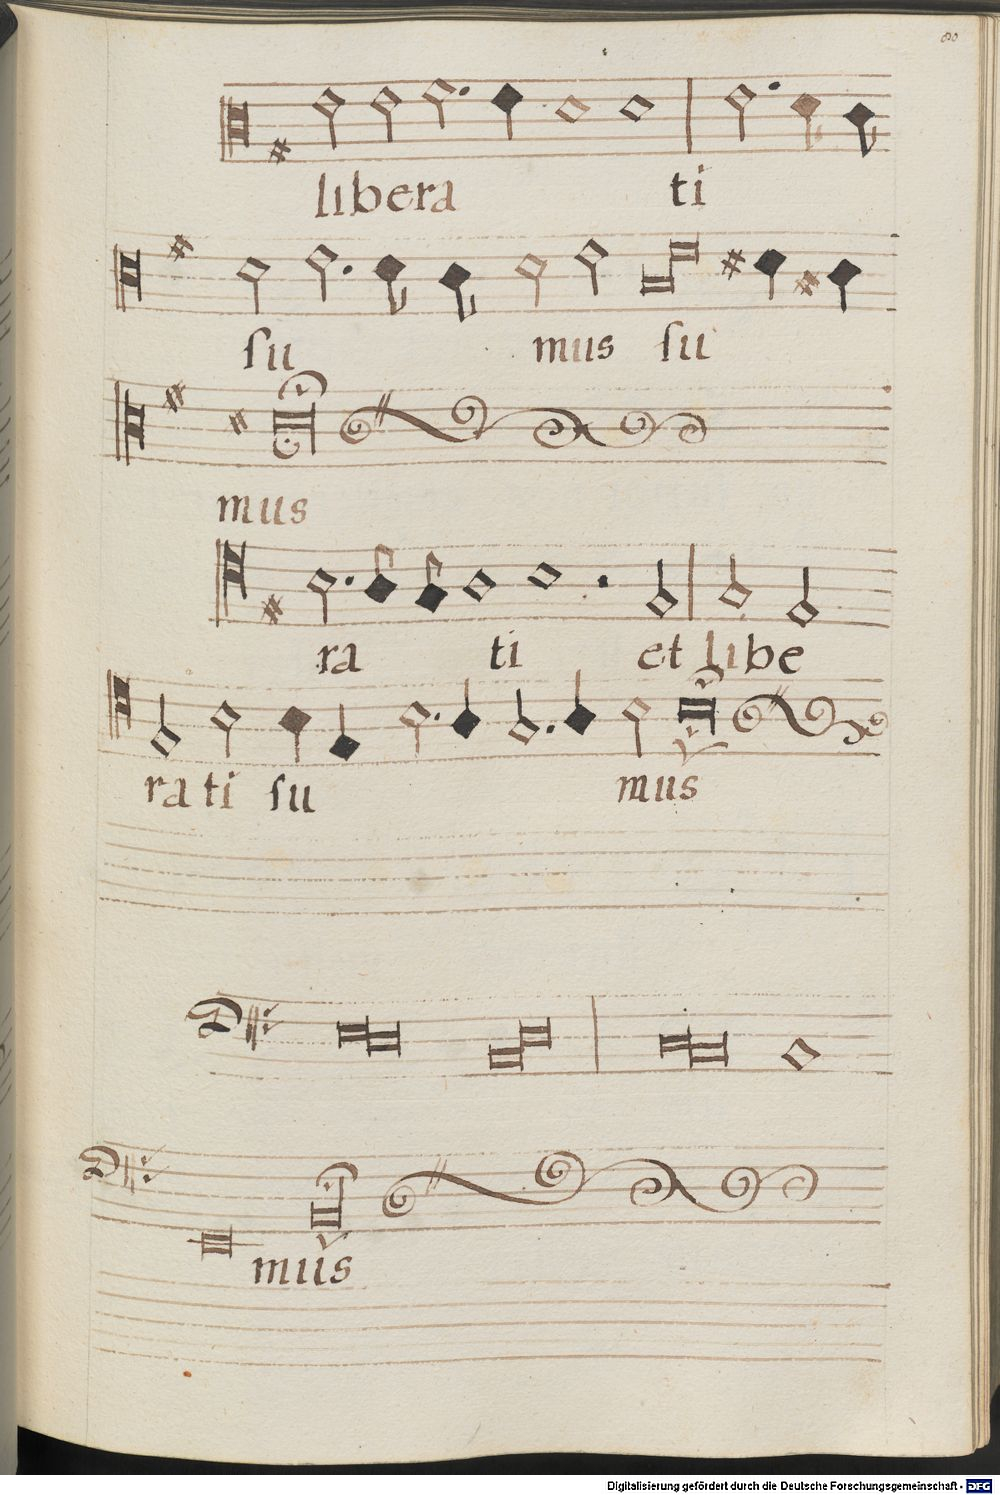 80
libera ti
su mus su
mus
ra ti et libe
ra ti su mus
mus
Digitalisierung gefördert durch die Deutsche Forschungsgemeinschaft - DFG